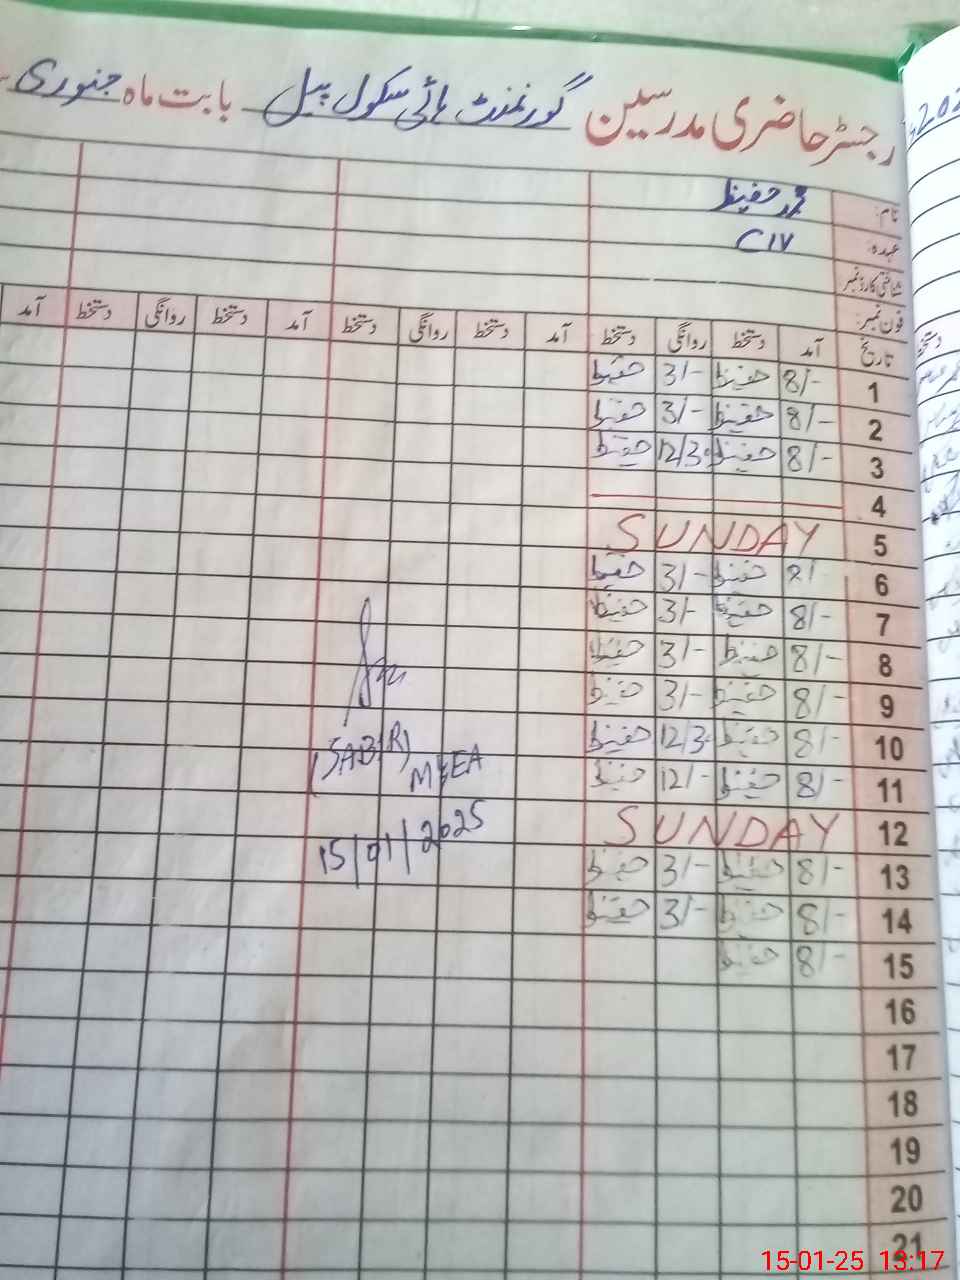 رجسٹر حاضری مدرسین گورنمنٹ ہائی سکول پیل بابت ماہ جنوری
نام: محمد حفیظ
عہدہ: CIV
شناختی کارڈ نمبر
فون نمبر:
تاریخ آمد دستخط روانگی دستخط آمد دستخط روانگی دستخط آمد دستخط روانگی دستخط آمد
1 8/- حفیظ 3/- حفیظ
2 8/- حفیظ 3/- حفیظ
3 8/- حفیظ 12/30 حفیظ
4
5 SUNDAY
6 8/- حفیظ 3/- حفیظ
7 8/- حفیظ 3/- حفیظ
8 8/- حفیظ 3/- حفیظ
9 8/- حفیظ 3/- حفیظ
10 8/- حفیظ 12/30 حفیظ
11 8/- حفیظ 12/- حفیظ
12 SUNDAY
13 8/- حفیظ 3/- حفیظ
14 8/- حفیظ 3/- حفیظ
15 8/- حفیظ
16
17
18
19
20
21
(SABIR)
M&EA
15/01/2025
15-01-25 13:17